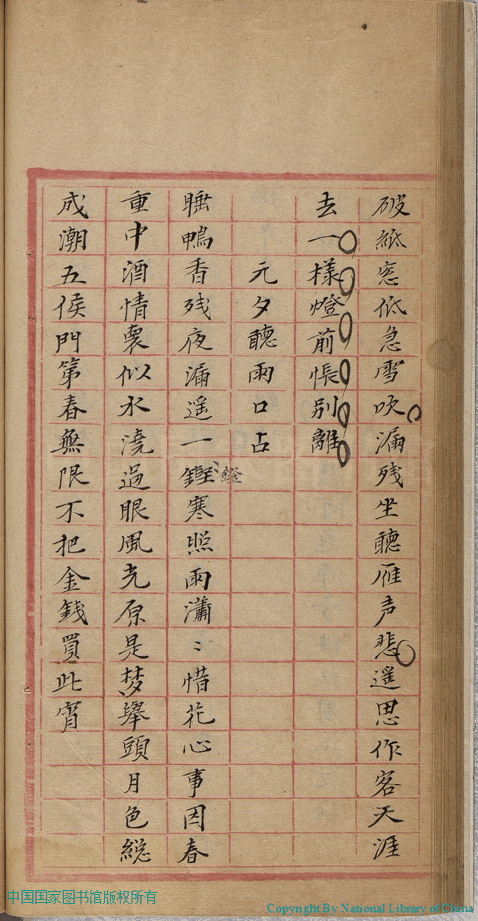 破紙窓低急雪吹漏残坐聽雁声悲遥思作客天涯
去一樣燈前悵別離
元夕聽雨口占
睡鴨香残夜漏遥一鏗寒照雨瀟〻惜花心事因春
鐙
重中酒情褱似水澆過眼風光原是梦舉頭月色総
成潮五侯門第春無限不把金錢買此宵
中国国家图书馆版权所有
Copyright By National Library of China